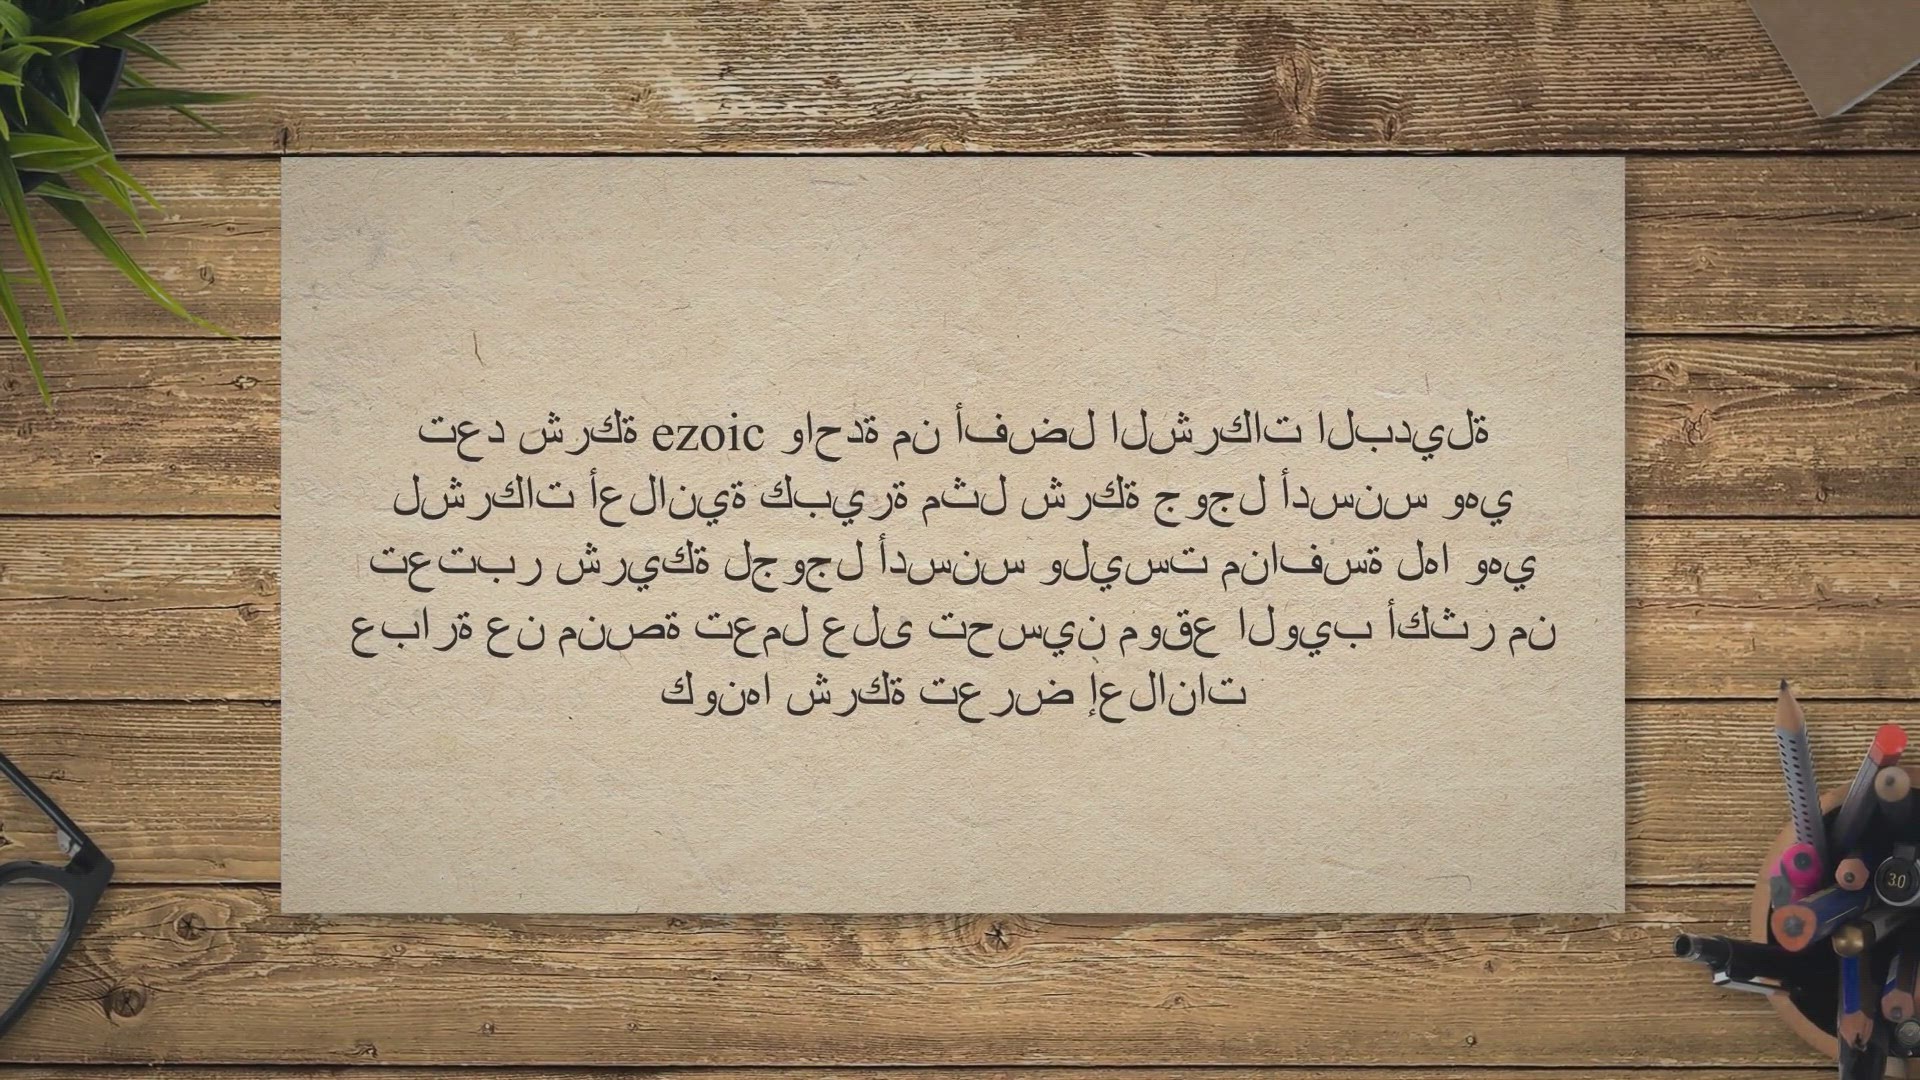 تعد شركة ezoic واحدة من أفضل الشركات البديلة
لشركات أعلانية كبيرة مثل شركة جوجل أدسنس وهي
تعتبر شريكة لجوجل أدسنس وليست منافسة لها وهي
عبارة عن منصة تعمل على تحسين موقع الويب أكثر من
كونها شركة تعرض إعلانات
3.0